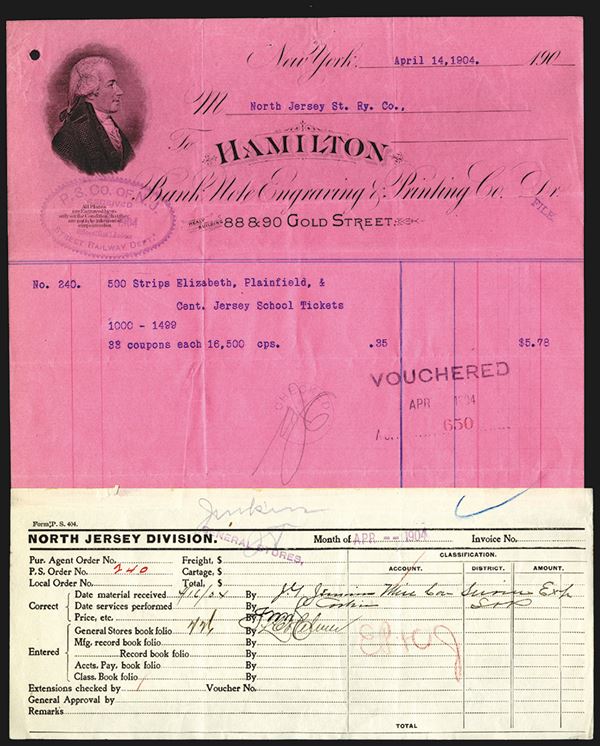 New York, April 14, 1904. 190
M North Jersey St. Ry. Co.,
To HAMILTON
Bank Note Engraving & Printing Co. Dr
88 & 90 GOLD STREET.
FILE.
P. S. CO. OF N. J.
STREET RAILWAY DEPT.
All Plates
No. 240. 500 Strips Elizabeth, Plainfield, &
Cent. Jersey School Tickets
1000 - 1499
33 coupons each 16,500 cps. .35 $5.78
VOUCHERED
APR 1904
650
CHECKED
Jenkins
GENERAL STORES.
Form P. S. 404.
NORTH JERSEY DIVISION. Month of APR -- 1904 Invoice No.
CLASSIFICATION.
Pur. Agent Order No. Freight, $ ACCOUNT. DISTRICT. AMOUNT.
P.S. Order No. 240 Cartage, $
Local Order No. Total, $
Correct Date material received 4/16/04 By
Date services performed By
Price, etc. By
Entered General Stores book folio By
Mfg. record book folio By
Record book folio By
Accts. Pay. book folio By
Class. Book folio By
Extensions checked by Voucher No.
General Approval by
Remarks
TOTAL